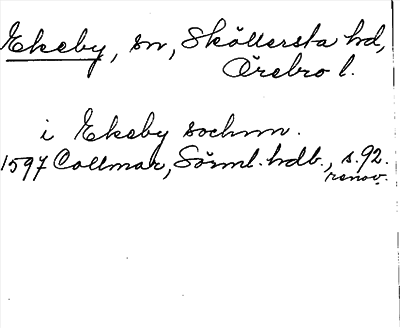 Ekeby, sn, Sköllersta hd,
Örebro l.
i Ekeby sochnn.
1597 Collmar, Sörml. hdb., s. 92.
renov.